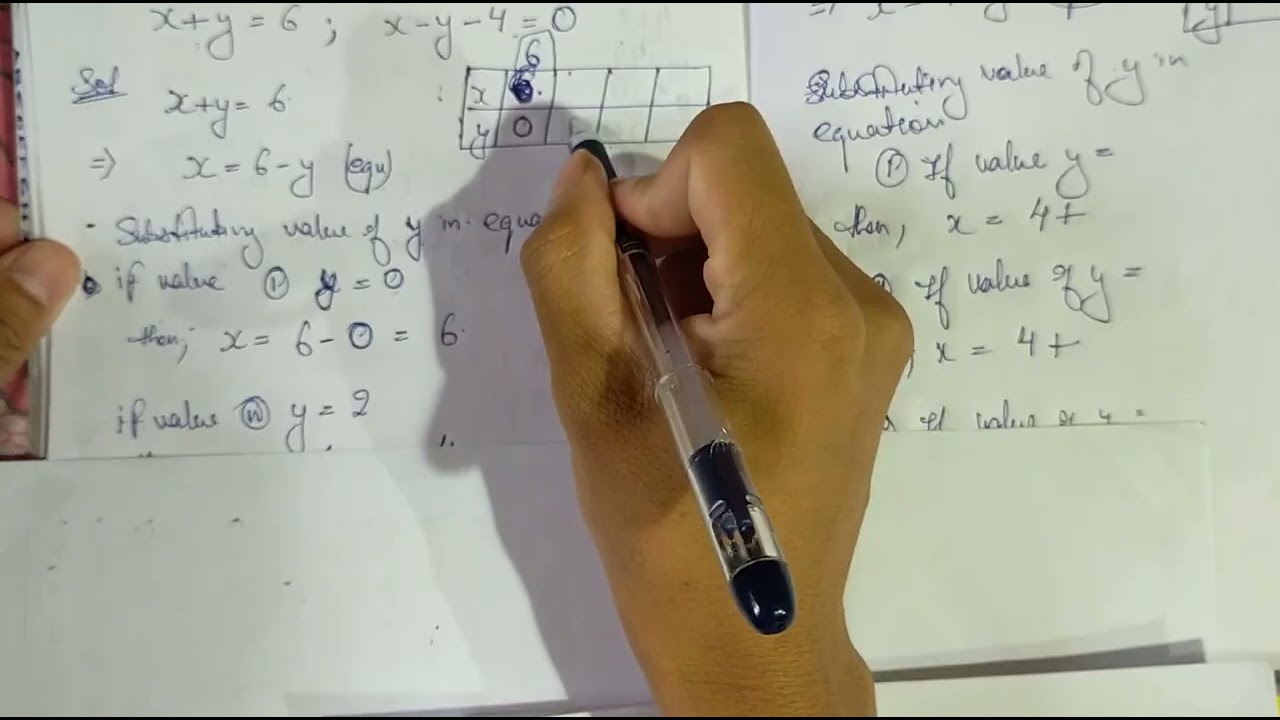 x+y = 6 ; x-y-4 = 0
Sol x+y= 6
6
x 6
y 0
=> x = 6-y (equ)
Substituting value of y in equa
if value (i) y = 0
then; x = 6-0 = 6
if value y = 2
Substituting value of y in
equation
(i) If value y =
then, x = 4+
If value of y =
; x = 4+
If value of y =